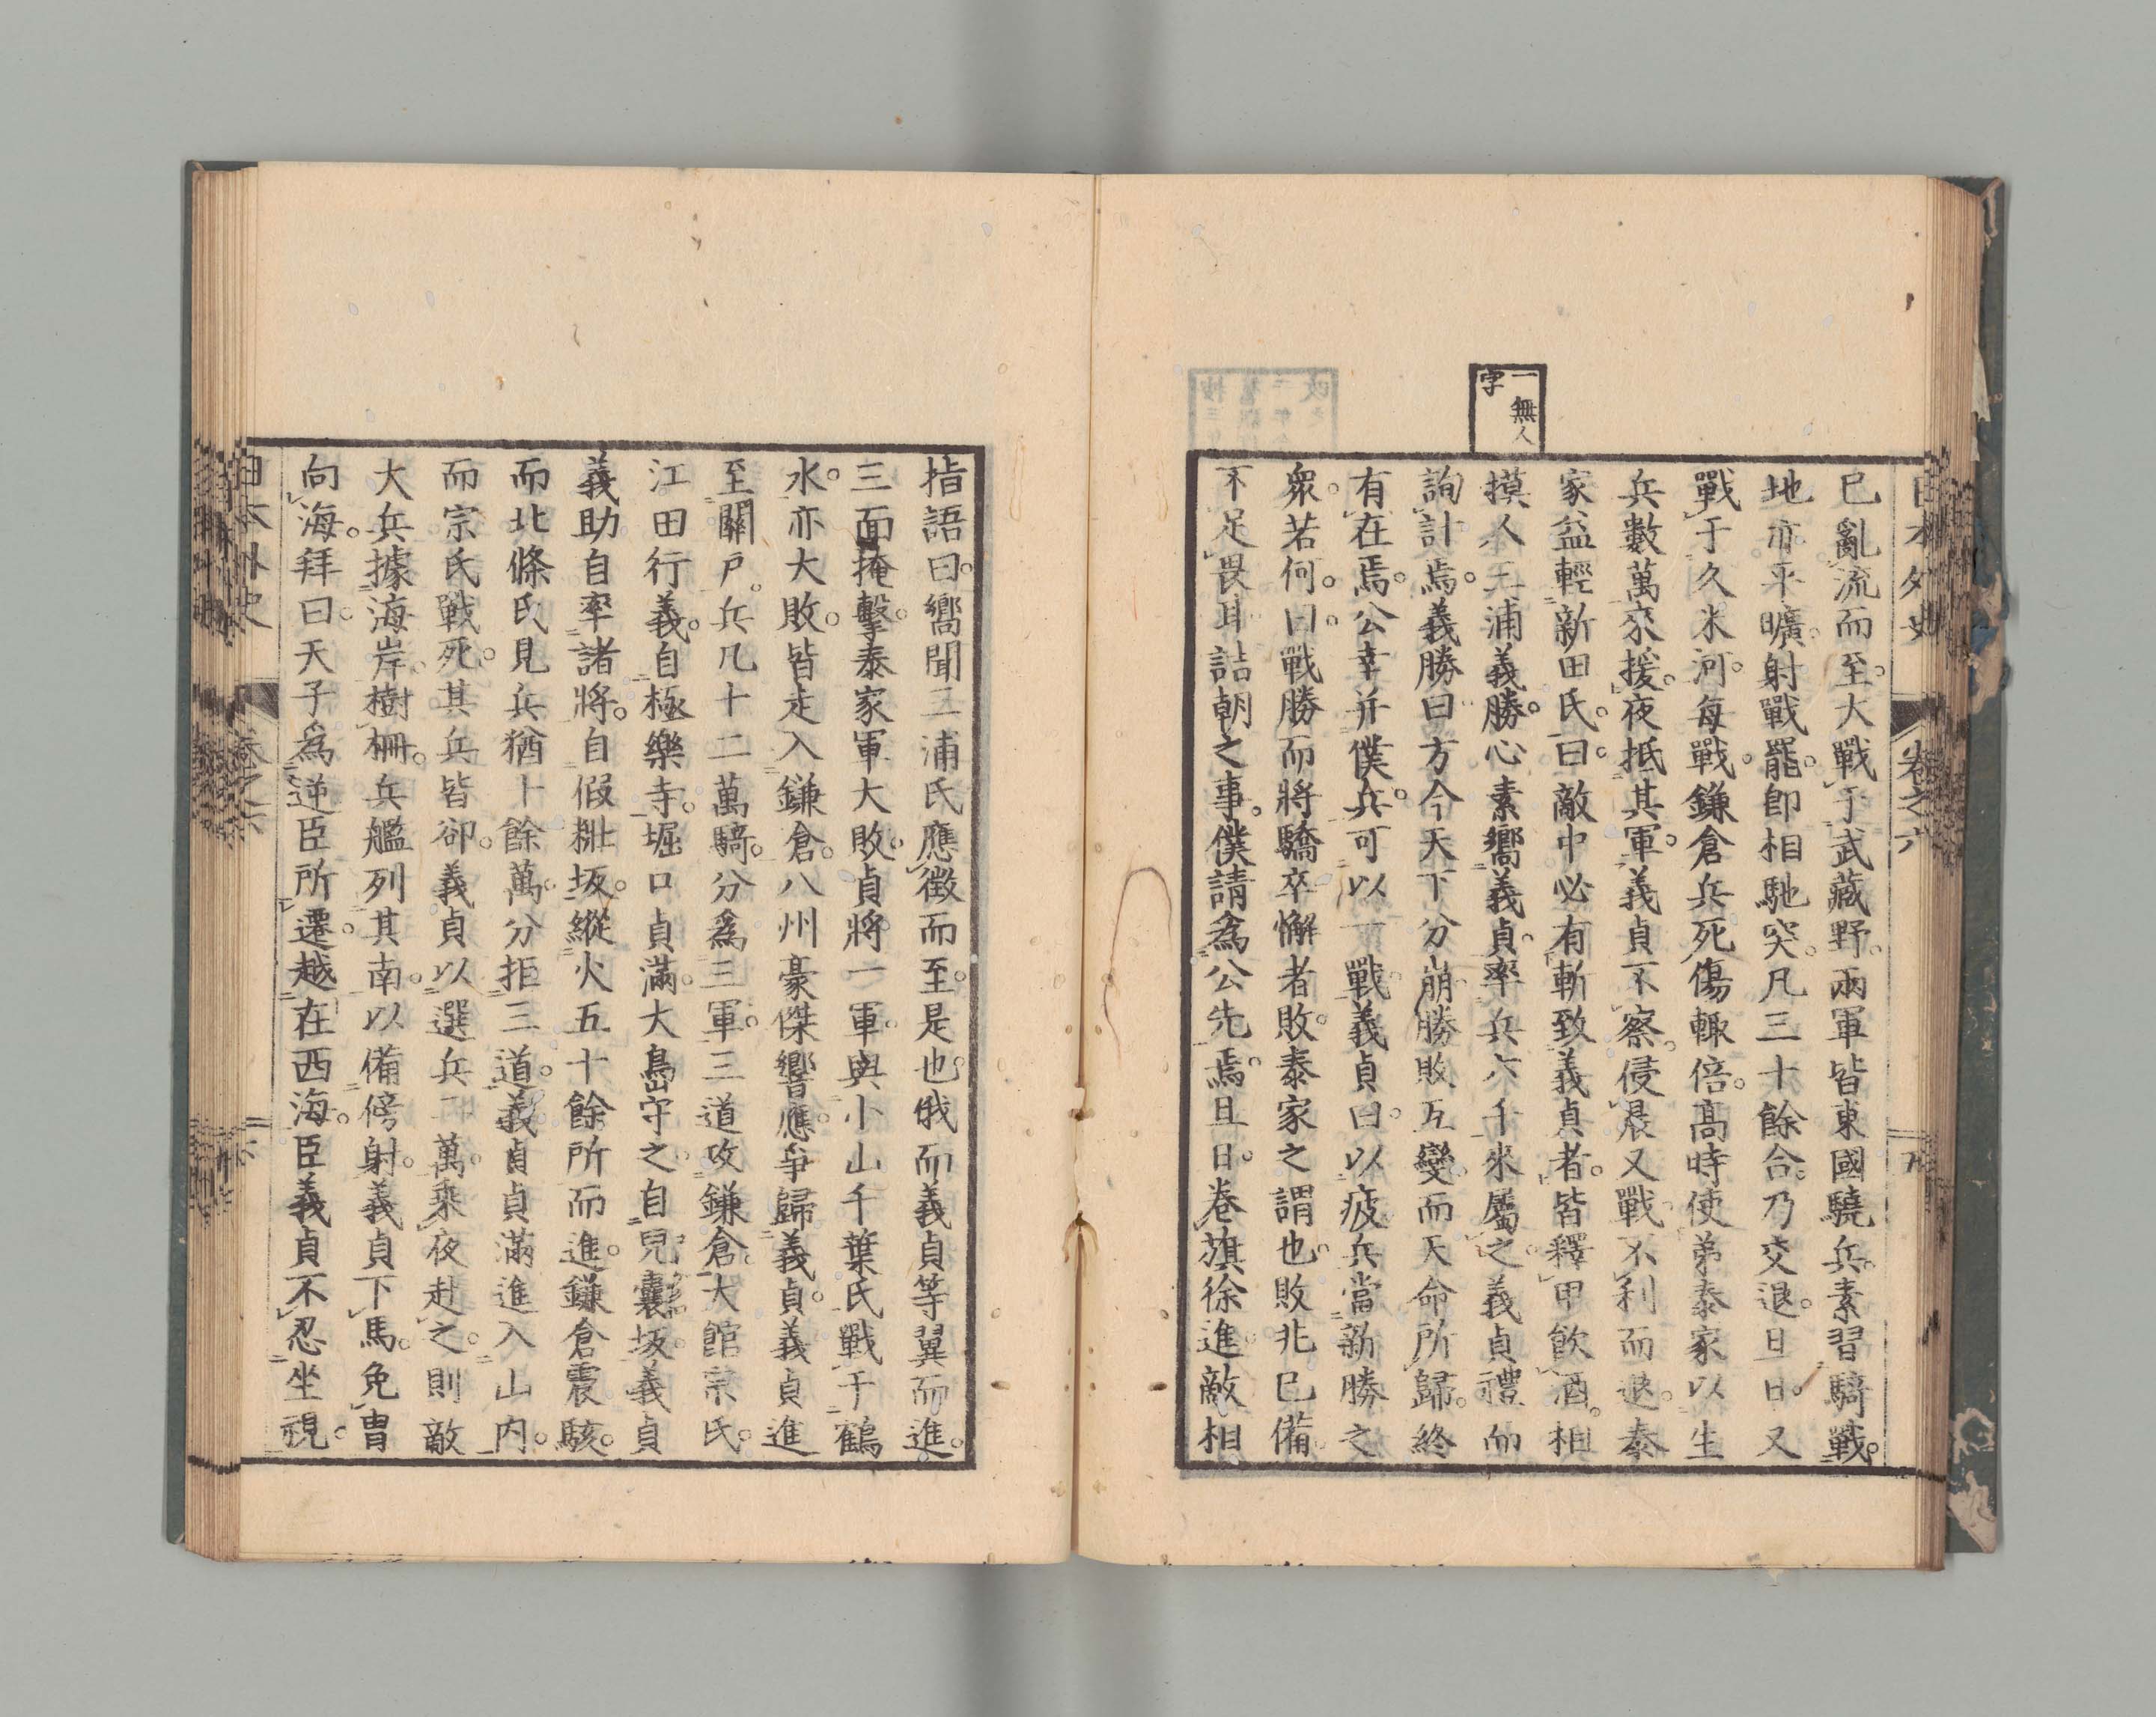 日本外史
卷之六
一無人
字
已亂流而至。大戰于武藏野。兩軍皆東國驍兵。素習騎戰。
地亦平曠。射戰罷。卽相馳突。凡三十餘合。乃交退。旦日。又
戰于久米河。每戰。鎌倉兵死傷輙倍。高時使弟泰家以生
兵數萬來援。夜抵其軍。義貞不察。侵晨又戰。不利而退。泰
家益輕新田氏。曰。敵中必有斬致義貞者。皆釋甲飮酒。相
摸人三浦義勝。心素嚮義貞。率兵六千來屬之。義貞禮而
詢計焉。義勝曰方今天下分崩。勝敗互變。而天命所歸。終
有在焉。公幸幷僕兵。可以一戰。義貞曰。以疲兵當新勝之
衆。若何。曰。戰勝而將驕卒懈者敗。泰家之謂也。敗兆已備。
不足畏耳。詰朝之事。僕請爲公先焉。旦日。卷旗徐進。敵相
指語曰。嚮聞三浦氏應徵而至。是也。俄而義貞等翼而進。
三面掩擊。泰家軍大敗。貞將一軍。與小山千葉氏戰于鶴
水。亦大敗。皆走入鎌倉。八州豪傑響應。爭歸義貞。義貞進
至關戶。兵凡十二萬騎。分爲三軍。三道攻鎌倉。大館宗氏。
江田行義。自極樂寺。堀口貞滿。大島守之。自兒囊坂。義貞
義助自率諸將。自假粧坂。縱火五十餘所而進。鎌倉震駭。
而北條氏見兵猶十餘萬。分拒三道。義貞貞滿進入山内。
而宗氏戰死。其兵皆卻。義貞以選兵二萬。乘夜赴之。則敵
大兵據海岸。樹柵。兵艦列其南。以備傍射。義貞下馬。免冑
向海。拜曰。天子爲逆臣所遷。越在西海。臣義貞不忍坐視。
日本外史
卷之六